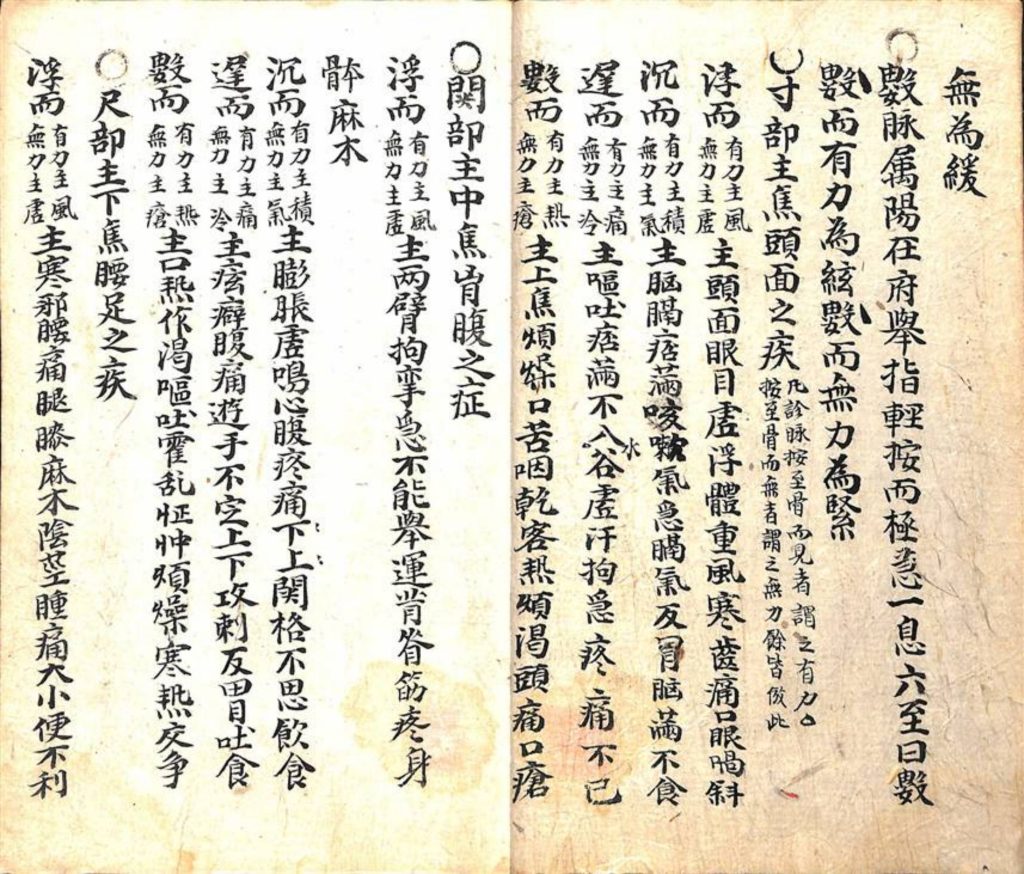 無為緩
數脉属陽在府舉指輕按而極急一息六至曰數
數而有力為絃數而無力為緊
寸部主焦頭面之疾 凡診脉按至骨而見者謂之有力 按至骨而無者謂之無力餘皆倣此
浮而 有力主風 無力主虛 主頭面眼目虛浮體重風寒齒痛口眼喎斜
沉而 有力主積 無力主氣 主胸膈痞滿咳嗽氣急腸氣反胃胸滿不食
遲而 有力主痛 無力主冷 主嘔吐痞滿不入水谷虛汗拘急疼痛不已
數而 有力主热 無力主瘡 主上焦煩燥口苦咽乾客热煩渴頭痛口瘡
関部主中焦肯腹之症
浮而 有力主風 無力主虛 主两臂拘挛急不能舉運背脊筋疼身
骵麻木
沉而 有力主積 無力主氣 主膨脹虛鳴心腹疼痛下上関格不思飲食
遲而 有力主痛 無力主冷 主痃癖腹痛遊手不定上下攻刺反胃吐食
數而 有力主热 無力主瘡 主口热作渴嘔吐霍乱怔忡煩燥寒热交争
尺部主下焦腰足之疾
浮而 有力主風 無力主虛 主寒邪腰痛腿膝麻木陰莖腫痛大小便不利